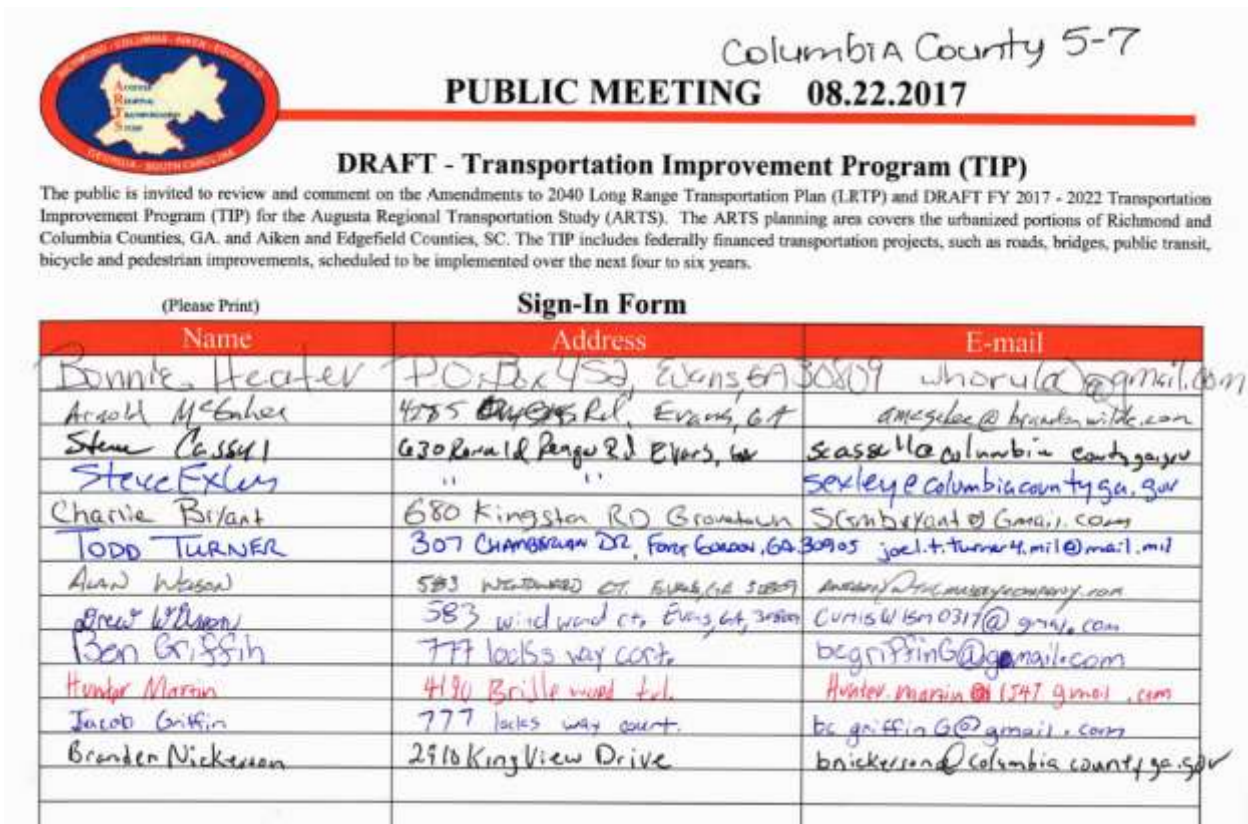 RICHMOND - COLUMBIA - AIKEN - EDGEFIELD
Augusta
Regional
Transportation
Study
GEORGIA - SOUTH CAROLINA
Columbia County 5-7
PUBLIC MEETING 08.22.2017
DRAFT - Transportation Improvement Program (TIP)
The public is invited to review and comment on the Amendments to 2040 Long Range Transportation Plan (LRTP) and DRAFT FY 2017 - 2022 Transportation
Improvement Program (TIP) for the Augusta Regional Transportation Study (ARTS). The ARTS planning area covers the urbanized portions of Richmond and
Columbia Counties, GA. and Aiken and Edgefield Counties, SC. The TIP includes federally financed transportation projects, such as roads, bridges, public transit,
bicycle and pedestrian improvements, scheduled to be implemented over the next four to six years.
(Please Print) Sign-In Form
Name Address E-mail
Bonnie Heater P.O. Box 452, Evans, GA 30809 whoryl@gmail.com
Arnold 4285 Rd, Evans, GA
Steve 630 Ronald Reagan Rd Evans, Ga
Steve Exley " " sexley@columbiacountyga.gov
Charlie Bryant 680 Kingston RD Grovetown
TODD TURNER 307 CHAMBERLAIN DR, FORT GORDON, GA 30905 joel.t.turner4.mil@mail.mil
583 CT. EVANS, GA 30809
Drew Wilson 583 windward ct, Evans, GA, 30809
Ben Griffin 777 locks way cort. bcgriffin6@gmail.com
Hunter 4190
Jacob Griffin 777 locks way court. bc griffin 6@gmail.com
Branden Nickerson 2910 King View Drive bnickerson@columbiacountyga.gov